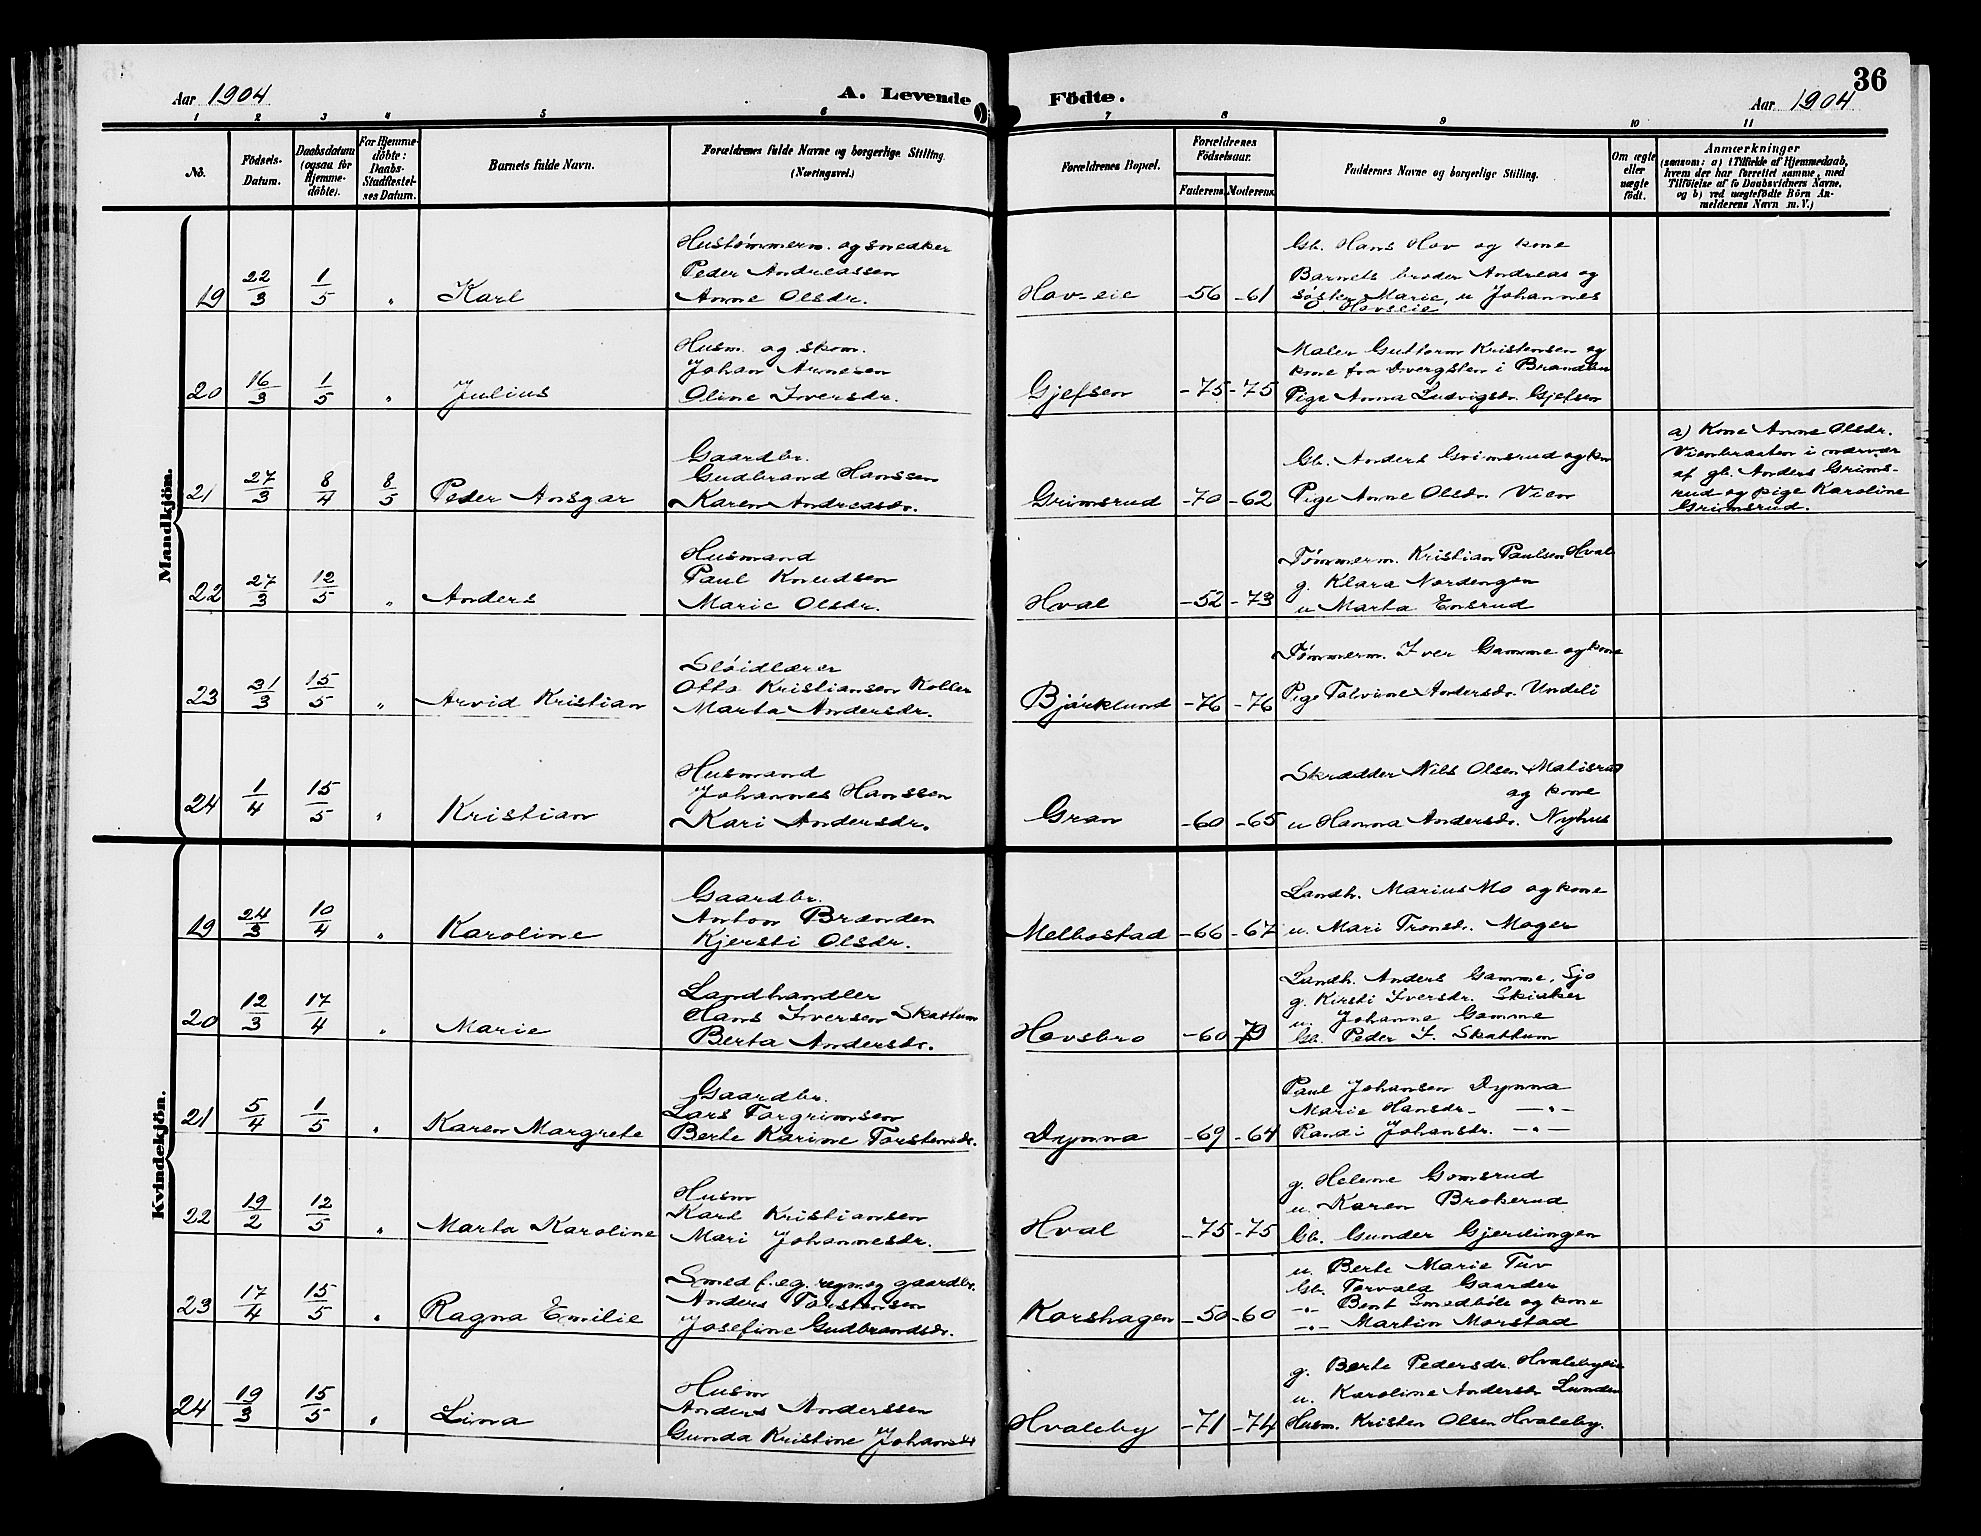 Aar 1904
A. Levende
Födte.
Aar 1904
36
1 2 3 4 5 6 7 8 9 10 11
No.
Födsels-
Datum.
Daabsdatum
(ogsaa for
Hjemme-
döbte).
For Hjemme-
döbte:
Daabs-
Stadfæstel-
ses Datum.
Barnets fulde Navn.
Forældrenes fulde Navne og borgerlige Stilling.
(Næringsvei.)
Forældrenes Bopæl.
Forældrenes
Födselsaar.
Faderens. Moderens.
Faddernes Navne og borgerlige Stilling.
Om ægte
eller
uægte
födt.
Anmærkninger
(saasom: a) i Tilfælde af Hjemmedaab,
hvem der har forrettet samme, med
Tilföielse af to Daabsvidners Navne,
og b) ved uægtefödte Börn An-
melderens Navn m. V.)
Mandkjön.
19 22/3 1/5 " Karl
Hustømmerm. og snedker
Peder Andreassen
Anne Olsdr.
Hov-eie -56 -61
Gb. Hans Hov og kone
Barnets broder Andreas og
søster Marie, u Johannes
Hovseie
20 16/3 1/5 " Julius
Husm. og skom.
Johan Arnesen
Oline Iversdr.
Gjefsen -75 -75
Maler Guttorm Kristensen og
kone fra Dvergsten i Brandbu
Pige Anna Ludvigsdr. Gjefsen
21 27/3 8/4 8/5 Peder Ansgar
Gaardbr.
Gudbrand Hanssen
Karen Andreasdr.
Grimsrud -70 -62
Gb. Anders Grimsrud og kn
Pige Anne Olsdr. Vien
a) Kone Anne Olsdr.
Vienbraaten i nærvær
af gb. Anders Grims-
rud og pige Karoline
Grimsrud.
22 27/3 12/5 " Anders
Husmand
Paul Knudsen
Marie Olsdr.
Hval -52 -73
Tømmerm. Kristian Paulsen Hval
g. Klara Nordengen
u Marta Ensrud
23 31/3 15/5 " Arvid Kristian
Sløidlærer
Otto Kristiansen Koller
Marta Andersdr.
Bjørklund -76 -76
Tømmerm. Iver Gamme og kone
Pige Talvine Andersdr. Undeli
24 1/4 15/5 " Kristian
Husmand
Johannes Hanssen
Kari Andersdr.
Gran -60 -65
Skrædder Nils Olsen Matisrud
og kone
u Hanna Andersdr. Nyhus
Kvindekjön.
19 24/3 10/4 " Karoline
Gaardbr.
Anton Brænden
Kjersti Olsdr.
Melbostad -66 -67
Landh. Marius Mo og kone
u. Mari Tronsdr. Moger
20 12/3 17/4 " Marie
Landhandler
Hans Iversen Skattum
Berta Andersdr.
Hovsbro -60 -79
Landh. Anders Gamme, Sjo
g. Kirsti Iversdr. Skiaker
u. Johanne Gamme
Gb. Peder I. Skattum
21 5/4 1/5 " Karen Margrete
Gaardbr.
Lars Torgrimsen
Berte Karine Torstensdr.
Dynna -69 -64
Paul Johansen Dynna
Marie Hansdr. — " —
Randi Johansdr. — " —
22 19/2 12/5 " Marta Karoline
Husm
Karl Kristiansen
Mari Johannesdr.
Hval -75 -75
g. Helene Gomsrud
u. Karen Brokerud
Gb. Gunder Gjerdingen
23 17/4 15/5 " Ragna Emilie
Smed f. eg. regn og gaardbr.
Anders Torstensen
Josefine Gudbrandsdr.
Korshagen -50 -60
u. Berte Marie Tuv
Gb. Torvald Gaarder
-"- Bent Smedbøle og kone
-"- Martin Morstad
24 19/3 15/5 " Lina
Husm
Anders Anderssen
Gunda Kristine Johansdr
Hvaleby -71 -74
g. Berte Pedersdr. Hvalebyeie
u. Karoline Andersdr Lunden
Husm. Kristen Olsen Hvaleby.